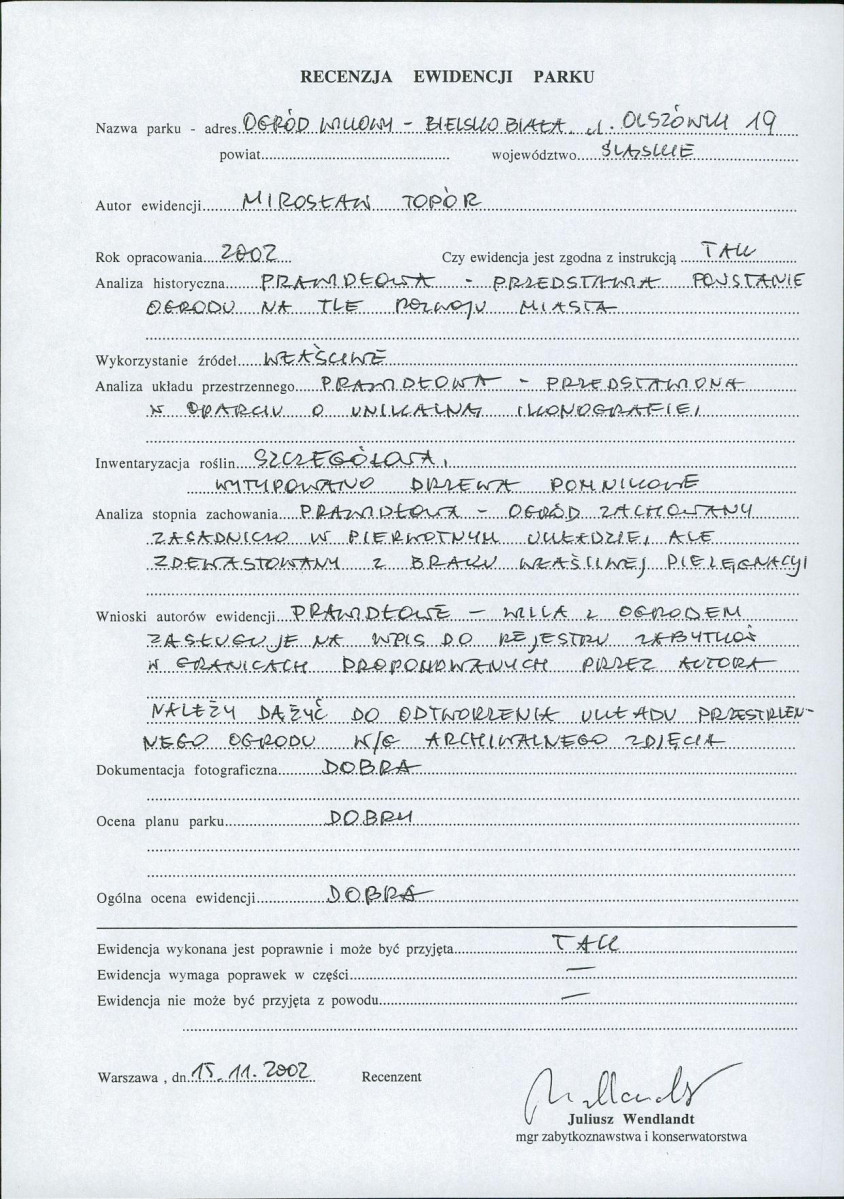 RECENZJA EWIDENCJI PARKU
Nazwa parku - adres OGRÓD WILLOWY - BIELSKO BIAŁA, ul. OLSZÓWKI 19
powiat województwo ŚLĄSKIE
Autor ewidencji MIROSŁAW TOPÓR
Rok opracowania 2002 Czy ewidencja jest zgodna z instrukcją TAK
Analiza historyczna PRAWIDŁOWA - PRZEDSTAWIA POWSTANIE
OGRODU NA TLE ROZWOJU MIASTA
Wykorzystanie źródeł WŁAŚCIWE
Analiza układu przestrzennego PRAWIDŁOWA - PRZEDSTAWIONA
W OPARCIU O UNIKALNĄ IKONOGRAFIE,
Inwentaryzacja roślin SZCZEGÓŁOWA,
WYTYPOWANO DRZEWA POMNIKOWE
Analiza stopnia zachowania PRAWIDŁOWA - OGRÓD ZACHOWANY
ZASADNICZO W PIERWOTNYM UKŁADZIE, ALE
ZDEWASTOWANY Z BRAKU WŁAŚCIWEJ PIELĘGNACJI
Wnioski autorów ewidencji PRAWIDŁOWE - WILLA Z OGRODEM
ZASŁUGUJE NA WPIS DO REJESTRU ZABYTKÓW
W GRANICACH PROPONOWANYCH PRZEZ AUTORA
NALEŻY DĄŻYĆ DO ODTWORZENIA UKŁADU PRZESTRZEN-
NEGO OGRODU W/G ARCHIWALNEGO ZDJĘCIA
Dokumentacja fotograficzna DOBRA
Ocena planu parku DOBRY
Ogólna ocena ewidencji DOBRA
Ewidencja wykonana jest poprawnie i może być przyjęta TAK
Ewidencja wymaga poprawek w części —
Ewidencja nie może być przyjęta z powodu —
Warszawa , dn 15.11.2002 Recenzent
Juliusz Wendlandt
mgr zabytkoznawstwa i konserwatorstwa